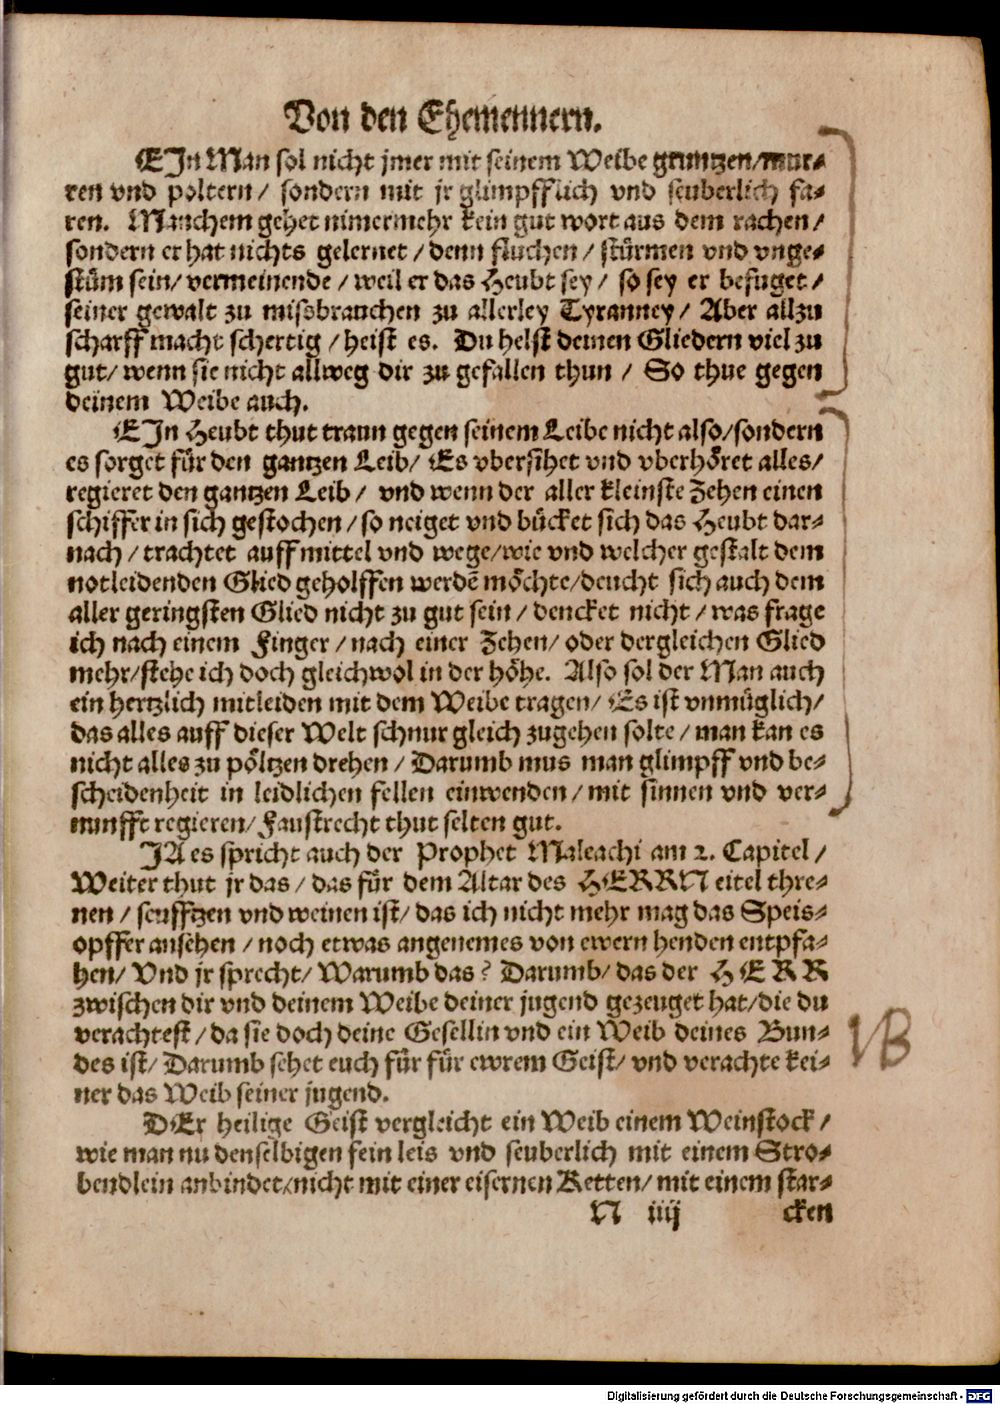 Von den Ehemennern.
EJn Man sol nicht jmer mit seinem Weibe gruntzen/mur-
ren vnd poltern/ sondern mit jr glimpfflich vnd seuberlich fa-
ren. Manchem gehet nimermehr kein gut wort aus dem rachen/
sondern er hat nichts gelernet/denn fluchen/ stürmen vnd vnge-
stüm sein/ vermeinende/weil er das Heubt sey/ so sey er befuget/
seiner gewalt zu missbrauchen zu allerley Tyranney/ Aber allzu
scharff macht schertig/heist es. Du helst deinen Gliedern viel zu
gut/wenn sie nicht allweg dir zu gefallen thun/ So thue gegen
deinem Weibe auch.
EJn Heubt thut traun gegen seinem Leibe nicht also/sondern
es sorget für den gantzen Leib/ Es vbersihet vnd vberhöret alles/
regieret den gantzen Leib/ vnd wenn der aller kleinste Zehen einen
schiffer in sich gestochen/so neiget vnd bücket sich das Heubt dar-
nach/trachtet auff mittel vnd wege/wie vnd welcher gestalt dem
notleidenden Glied geholffen werdē möchte/deucht sich auch dem
aller geringsten Glied nicht zu gut sein/dencket nicht/was frage
ich nach einem Finger/nach einer Zehen/oder dergleichen Glied
mehr/stehe ich doch gleichwol in der höhe. Also sol der Man auch
ein hertzlich mitleiden mit dem Weibe tragen/ Es ist vnmüglich/
das alles auff dieser Welt schnur gleich zugehen solte/man kan es
nicht alles zu pöltzen drehen/Darumb mus man glimpff vnd be-
scheidenheit in leidlichen fellen einwenden/mit sinnen vnd ver-
nunfft regieren/Faustrecht thut selten gut.
JA es spricht auch der Prophet Maleachi am 2. Capitel/
Weiter thut jr das/das für dem Altar des HERRN eitel thre-
nen/seufftzen vnd weinen ist/das ich nicht mehr mag das Speis-
opffer ansehen/noch etwas angenemes von ewern henden entpfa-
hen/ Vnd jr sprecht/ Warumb das? Darumb/das der HERR
zwischen dir vnd deinem Weibe deiner jugend gezeuget hat/die du
verachtest/da sie doch deine Gesellin vnd ein Weib deines Bun-
des ist/Darumb sehet euch für für ewrem Geist/vnd verachte kei-
ner das Weib seiner jugend.
NB
DEr heilige Geist vergleicht ein Weib einem Weinstock/
wie man nu denselbigen fein leis vnd seuberlich mit einem Stro-
bendlein anbindet/nicht mit einer eisernen Ketten/mit einem star-
N iiij cken
Digitalisierung gefördert durch die Deutsche Forschungsgemeinschaft - DFG